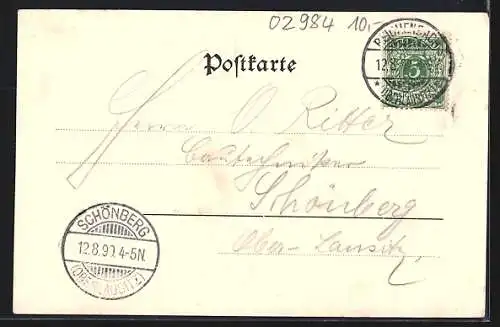 02984 10,-
12.8.
5
Postkarte
Herrn O Ritter
Bautechniker
Schönberg
Ober-Lausitz
SCHÖNBERG
12.8.99. 4-5N.
(OBERLAUSITZ)